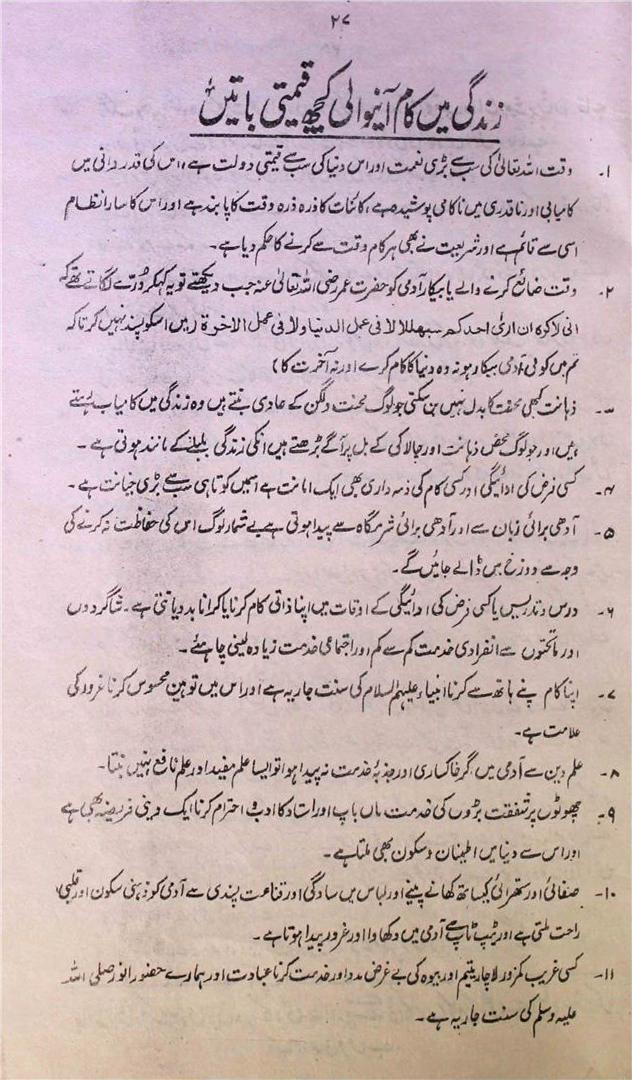 ۲۷
زندگی میں کام آنیوالی کچھ قیمتی باتیں
۱۔ وقت اللہ تعالیٰ کی سب سے بڑی نعمت اور اس دنیا کی سب سے قیمتی دولت ہے، اس کی قدر دانی میں
کامیابی اور ناقدری میں ناکامی پوشیدہ ہے، کائنات کا ذرہ ذرہ وقت کا پابند ہے اور اس کا سارا نظام
اسی سے قائم ہے اور شریعت نے بھی ہر کام وقت سے کرنے کا حکم دیا ہے۔
۲۔ وقت ضائع کرنے والے یا بیکار آدمی کو حضرت عمر رضی اللہ تعالیٰ عنہ جب دیکھتے تو یہ کہکر دُرّے لگاتے تھے کہ
انی لاکرہ ان اریٰ احدکم سبھللا لا فی عمل الدنیا ولا فی عمل الاخرۃ (میں اسکو پسند نہیں کرتا کہ
تم میں کوئی آدمی بیکار ہو نہ وہ دنیا کا کام کرے اور نہ آخرت کا)
۳۔ ذہانت کبھی محنت کا بدل نہیں بن سکتی جو لوگ محنت و لگن کے عادی بنتے ہیں وہ زندگی میں کامیاب رہتے
ہیں اور جو لوگ محض ذہانت اور چالاکی کے بل پر آگے بڑھتے ہیں انکی زندگی بلبلے کے مانند ہوتی ہے۔
۴۔ کسی فرض کی ادائیگی اور کسی کام کی ذمہ داری بھی ایک امانت ہے اسمیں کوتاہی سب سے بڑی خیانت ہے۔
۵۔ آدھی برائی زبان سے اور آدھی برائی شرمگاہ سے پیدا ہوتی ہے بے شمار لوگ اس کی حفاظت نہ کرنے کی
وجہ سے دوزخ میں ڈالے جائیں گے۔
۶۔ درس و تدریس یا کسی فرض کی ادائیگی کے اوقات میں اپنا ذاتی کام کرنا یا کرانا بددیانتی ہے۔ شاگردوں
اور ماتحتوں سے انفرادی خدمت کم سے کم اور اجتماعی خدمت زیادہ لینی چاہئے۔
۷۔ اپنا کام اپنے ہاتھ سے کرنا انبیاء علیہم السلام کی سنت جاریہ ہے اور اس میں توہین محسوس کرنا غرور کی
علامت ہے۔
۸۔ علم دین سے آدمی میں اگر خاکساری اور جذبۂ خدمت نہ پیدا ہوا تو ایسا علم مفید اور علم نافع نہیں بنتا۔
۹۔ چھوٹوں پر شفقت بڑوں کی خدمت ماں باپ اور استاد کا ادب و احترام کرنا ایک دینی فریضہ بھی ہے
اور اس سے دنیا میں اطمینان و سکون بھی ملتا ہے۔
۱۰۔ صفائی اور ستھرائی کیساتھ کھانے پینے اور لباس میں سادگی اور قناعت پسندی سے آدمی کو ذہنی سکون اور قلبی
راحت ملتی ہے اور ٹیپ ٹاپ سے آدمی میں دکھاوا اور غرور پیدا ہوتا ہے۔
۱۱۔ کسی غریب کمزور لاچار یتیم اور بیوہ کی بے غرض مدد اور خدمت کرنا عبادت اور ہمارے حضور انور صلی اللہ
علیہ وسلم کی سنت جاریہ ہے۔